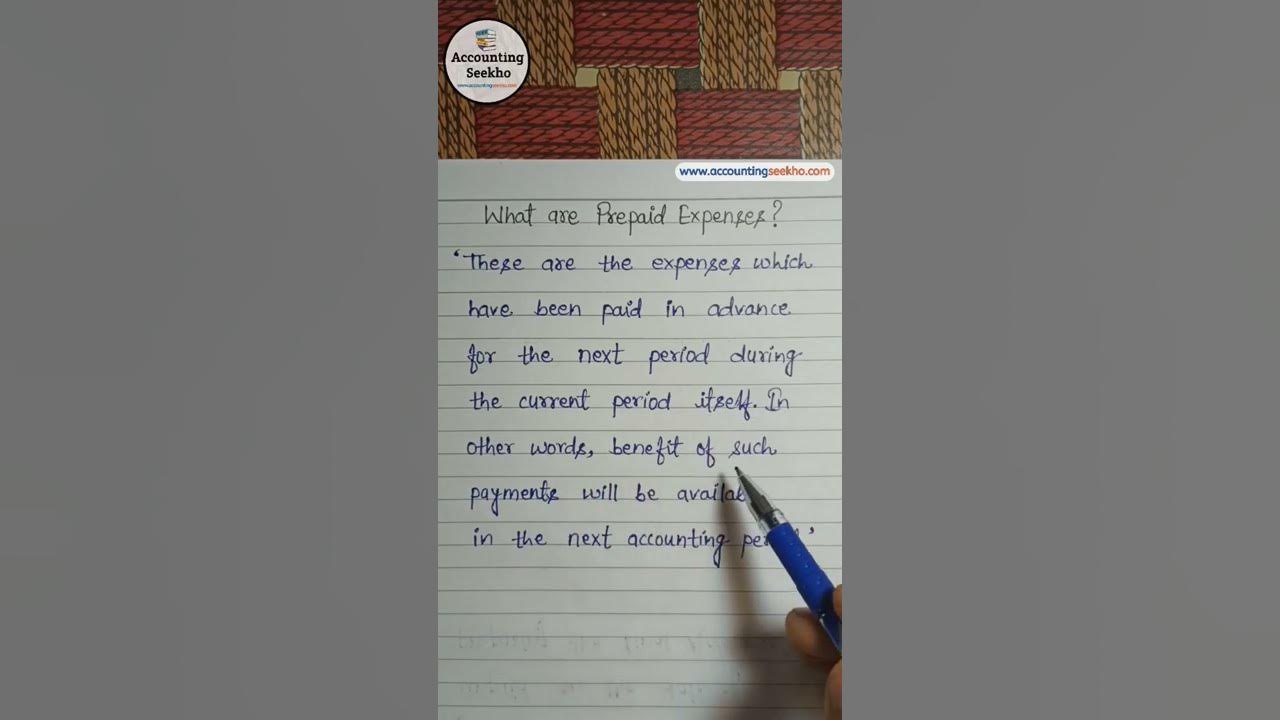 Accounting
Seekho
www.accountingseekho.com
www.accountingseekho.com
What are Prepaid Expenses?
'These are the expenses which
have been paid in advance
for the next period during
the current period itself. In
other words, benefit of such
payments will be
in the next accounting